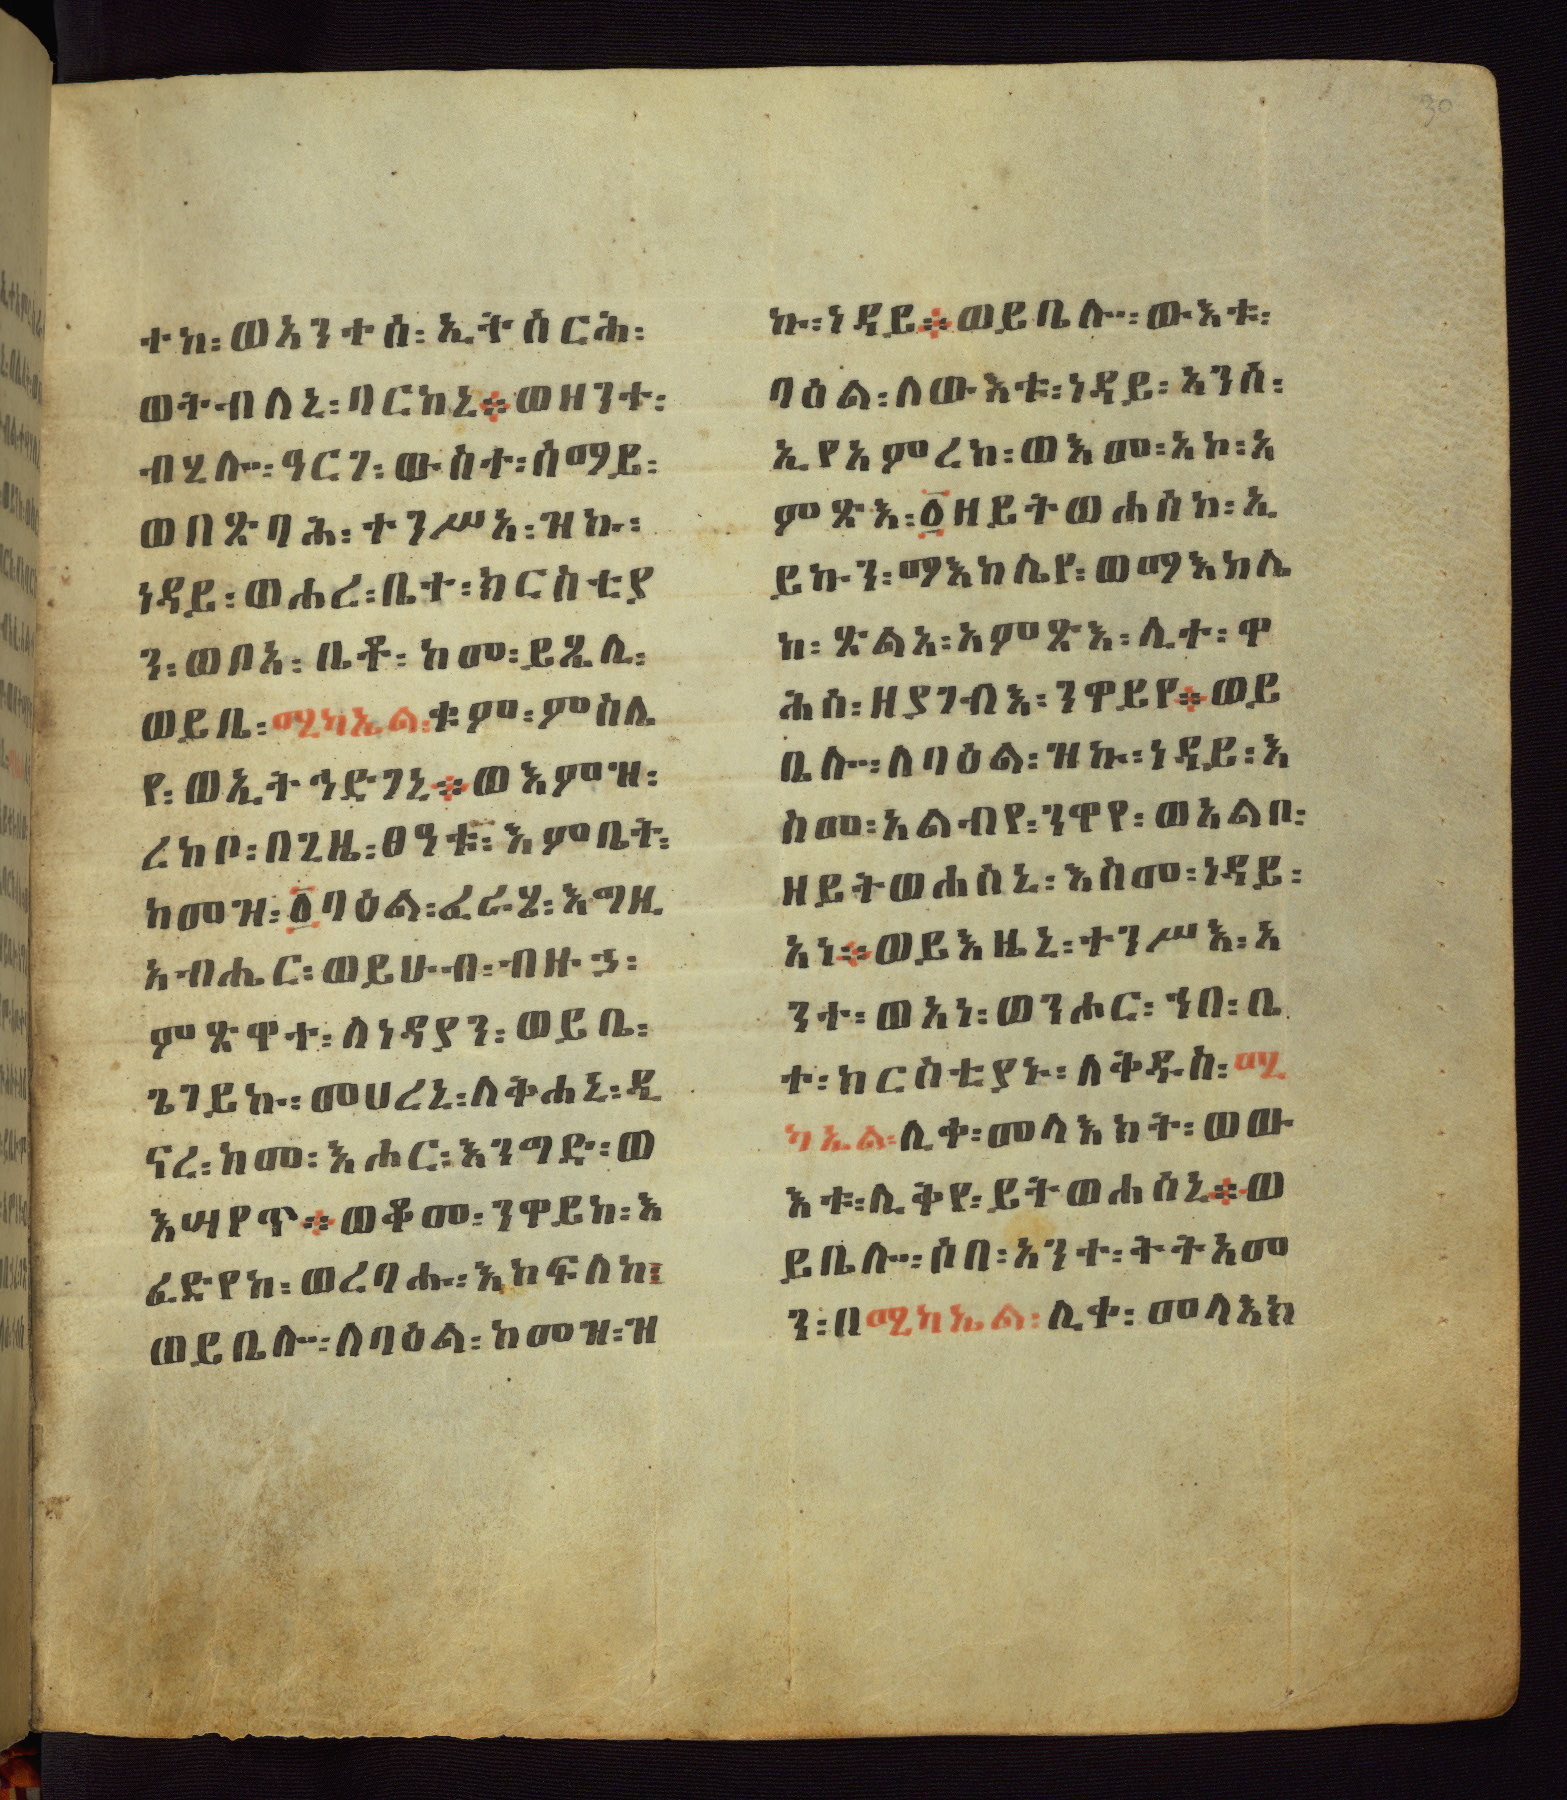 30
ተከ፡ወአንተሰ፡ኢትሰርሕ፡
ወትብለኒ፡ባርከኒ።ወዘንተ፡
ብሂሎ፡ዓርገ፡ውስተ፡ሰማይ፡
ወበጽባሕ፡ተንሥአ፡ዝኩ፡
ነዳይ፡ወሐረ፡ቤተ፡ክርስቲያ
ን፡ወቦአ፡ቤቶ፡ከመ፡ይጼሊ፡
ወይቤ፡ሚካኤል፡ቁም፡ምስሌ
የ፡ወኢትኅድገኒ።ወእምዝ፡
ረከቦ፡በጊዜ፡ፀዓቱ፡እምቤት፡
ከመዝ፡፩ባዕል፡ፈራሄ፡እግዚ
አብሔር፡ወይሁብ፡ብዙኃ፡
ምጽዋተ፡ለነዳያን፡ወይቤ፡
ጌገይኩ፡መሀረኒ፡ለቅሐኒ፡ዲ
ናረ፡ከመ፡እሐር፡እንግድ፡ወ
እሣየጥ።ወቆመ፡ንዋይከ፡እ
ፈድየከ፡ወረባሑ፡እከፍለከ፡
ወይቤሎ፡ለባዕል፡ከመዝ፡ዝ
ኩ፡ነዳይ።ወይቤሎ፡ውእቱ፡
ባዕል፡ለውእቱ፡ነዳይ፡አንሰ፡
ኢየአምረከ፡ወእመ፡አኮ፡አ
ምጽእ፡፩ዘይትወሐሰከ፡ኢ
ይኩን፡ማእከሌየ፡ወማእከሌ
ከ፡ጽልአ፡አምጽእ፡ሊተ፡ዋ
ሕሰ፡ዘያገብእ፡ንዋይየ።ወይ
ቤሎ፡ለባዕል፡ዝኩ፡ነዳይ፡እ
ስመ፡አልብየ፡ንዋየ፡ወአልቦ፡
ዘይትወሐሰኒ፡እስመ፡ነዳይ፡
አነ።ወይእዜኒ፡ተንሥእ፡አ
ንተ፡ወአነ፡ወንሐር፡ኀበ፡ቤ
ተ፡ክርስቲያኑ፡ለቅዱስ፡ሚ
ካኤል፡ሊቀ፡መላእክት፡ወው
እቱ፡ሊቅየ፡ይትወሐሰኒ።ወ
ይቤሎ፡ሶበ፡አንተ፡ትትአመ
ን፡በሚካኤል፡ሊቀ፡መላእክ